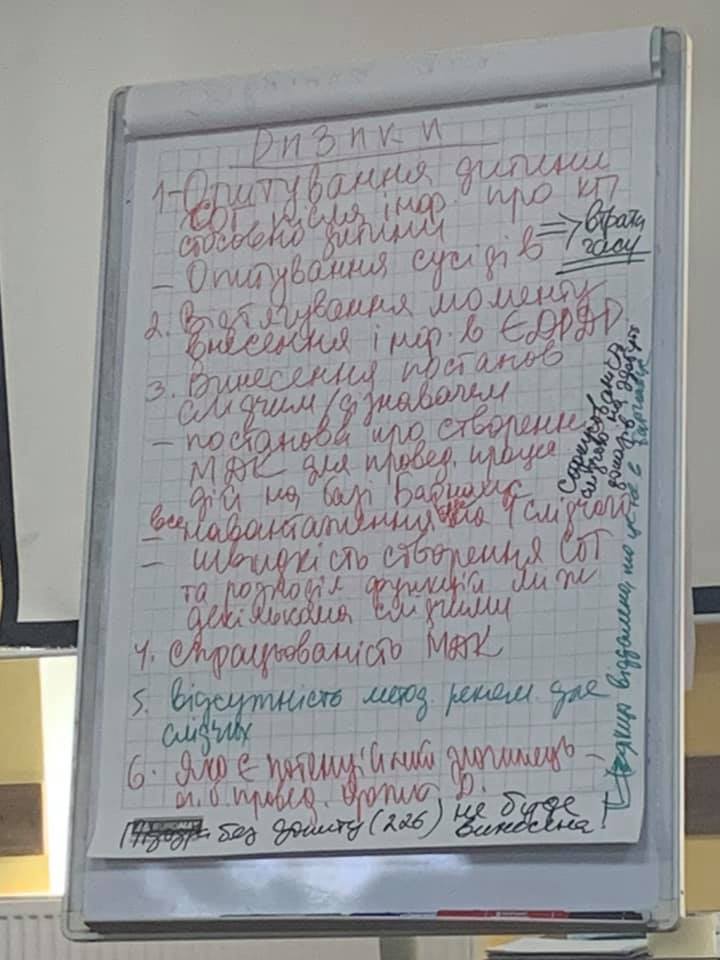 Ризики
1 - Опитування дитини
СОГ після інф. про КП
стосовно дитини
=> втрати
часу
- Опитування сусідів
2. Відтягування моменту
внесення інф. в ЄРДР.
3. Винесення постанов
слідчим/дізнавачем
- постанова про створення
МДК для провед. процес
дій на базі Барнахус
- все навантаження на 1 слідчого
- швидкість створення СОГ
та розподіл функцій між
декількома слідчими
4. Спрацьованість МДК
5. Відсутність метод. реком. для
слідчих
6. Якщо є потенційний злочинець -
м. б. провед. допит Д.
без допиту (226) не буде
винесена!